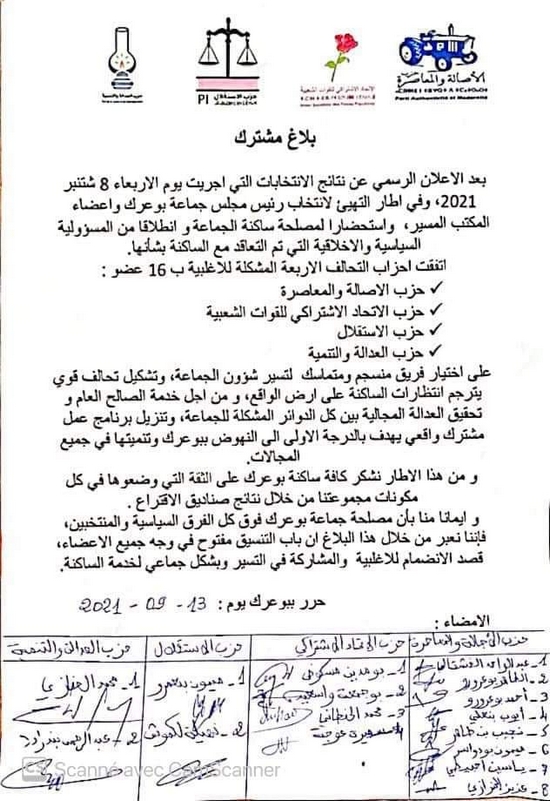 حزب الاستقلال
PI
الاتحاد الاشتراكي للقوات الشعبية
الأصالة والمعاصرة
Parti Authenticité et Modernité
بلاغ مشترك
بعد الاعلان الرسمي عن نتائج الانتخابات التي اجريت يوم الاربعاء 8 شتنبر
2021، وفي اطار التهيئ لانتخاب رئيس مجلس جماعة بوعرك واعضاء
المكتب المسير، واستحضارا لمصلحة ساكنة الجماعة و انطلاقا من المسؤولية
السياسية والاخلاقية التي تم التعاقد مع الساكنة بشأنها.
اتفقت احزاب التحالف الاربعة المشكلة للاغلبية ب 16 عضو :
✓ حزب الاصالة والمعاصرة
✓ حزب الاتحاد الاشتراكي للقوات الشعبية
✓ حزب الاستقلال
✓ حزب العدالة والتنمية
على اختيار فريق منسجم ومتماسك لتسير شؤون الجماعة، وتشكيل تحالف قوي
يترجم انتظارات الساكنة على ارض الواقع، و من اجل خدمة الصالح العام و
تحقيق العدالة المجالية بين كل الدوائر المشكلة للجماعة، وتنزيل برنامج عمل
مشترك واقعي يهدف بالدرجة الاولى الى النهوض ببوعرك وتنميتها في جميع
المجالات.
و من هذا الاطار نشكر كافة ساكنة بوعرك على الثقة التي وضعوها في كل
مكونات مجموعتنا من خلال نتائج صناديق الاقتراع .
و ايمانا منا بأن مصلحة جماعة بوعرك فوق كل الفرق السياسية والمنتخبين،
فإننا نعبر من خلال هذا البلاغ ان باب التنسيق مفتوح في وجه جميع الاعضاء،
قصد الانضمام للاغلبية والمشاركة في التسير وبشكل جماعي لخدمة الساكنة.
حرر ببوعرك يوم : 13 - 09 - 2021
الامضاء :
حزب الأصالة والمعاصرة
1 - عبد
2 -
3 - أحمد بوعرورو
4 - أيوب
5 - نجيب
6 - ميمون
7 - ياسين
8 - عزيز
حزب الاتحاد الاشتراكي
1 - بومدين
2 - بوجمعة
3 - محمد
4 -
حزب الاستقلال
1 - ميمون
2 -
حزب العدالة والتنمية
1 - محمد
2 - عبد الرحمن
CS Scanné avec CamScanner